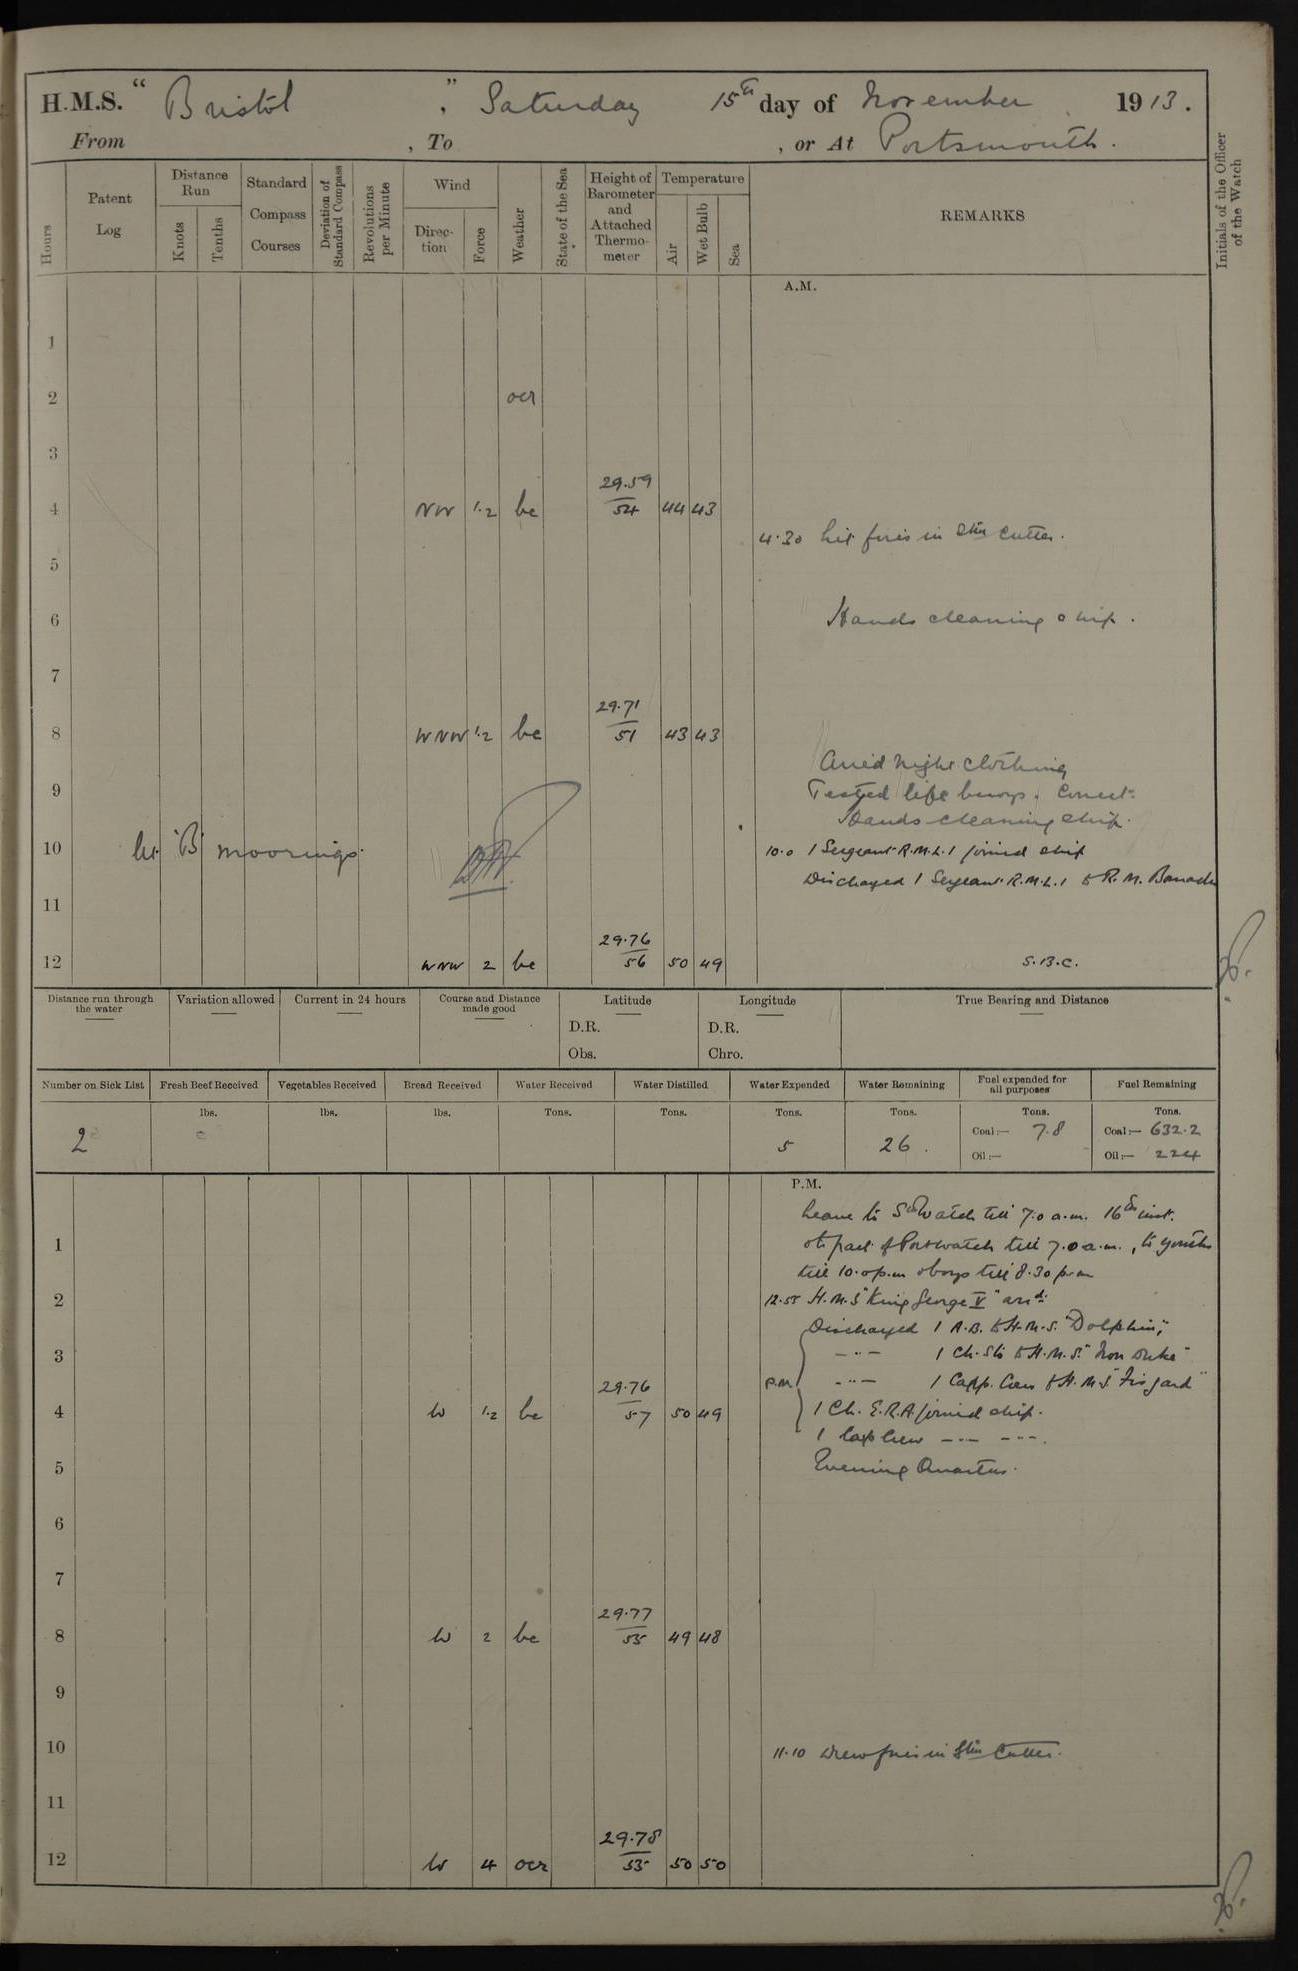 H.M.S. " Bristol ", Saturday 15th day of November 1913.
From , To , or At Portsmouth.
Hours
Patent Log
Distance Run
Knots
Tenths
Standard Compass Courses
Deviation of Standard Compass
Revolutions per Minute
Wind
Direction
Force
Weather
State of the Sea
Height of Barometer and Attached Thermometer
Temperature
Air
Wet Bulb
Sea
REMARKS
Initials of the Officer of the Watch
A.M.
1
2 ocr
3
29.59
4 NW 1.2 bc 54 44 43
4.30 Lit fires in Stm Cutter.
5
6 Hands cleaning ship.
7
29.71
8 WNW 1.2 bc 51 43 43
Aired night clothing
9 Tested life buoys. Correct.
Hands cleaning ship.
10 "B" moorings. 10.0 1 Sergeant R.M.L.I joined ship
Discharged 1 Sergeant R.M.L.I to R.M. Barracks
11
29.76
12 WNW 2 bc 56 50 49 S.B.C.
Distance run through the water
Variation allowed
Current in 24 hours
Course and Distance made good
Latitude
D.R.
Obs.
Longitude
D.R.
Chro.
True Bearing and Distance
Number on Sick List
Fresh Beef Received
Vegetables Received
Bread Received
Water Received
Water Distilled
Water Expended
Water Remaining
Fuel expended for all purposes
Fuel Remaining
lbs. lbs. lbs. Tons. Tons. Tons. Tons. Tons. Tons.
2 5 26. Coal:— 7.8 Coal:— 632.2
Oil:— Oil:— 224
P.M.
Leave to Watch till 7.0 a.m. 16th inst.
1 part of Port watch till 7.0 a.m., to youths
till 10.0 p.m. boys till 8.30 p.m
2 12.55 H.M.S "King George V" arrd.
Discharged 1 A.B. to H.M.S. "Dolphin",
3 -"- 1 Ch. Sto to H.M.S. "Iron Duke"
p.m. -"- 1 Carp. Crew to H.M.S "Fisgard"
29.76
4 W 1.2 bc 57 50 49 1 Ch. E.R.A. joined ship.
1 Carp Crew -"- -"-.
5 Evening Quarters.
6
7
29.77
8 W 2 bc 55 49 48
9
10 11.10 Drew fires in Stm Cutter.
11
29.78
12 W 4 ocr 55 50 50